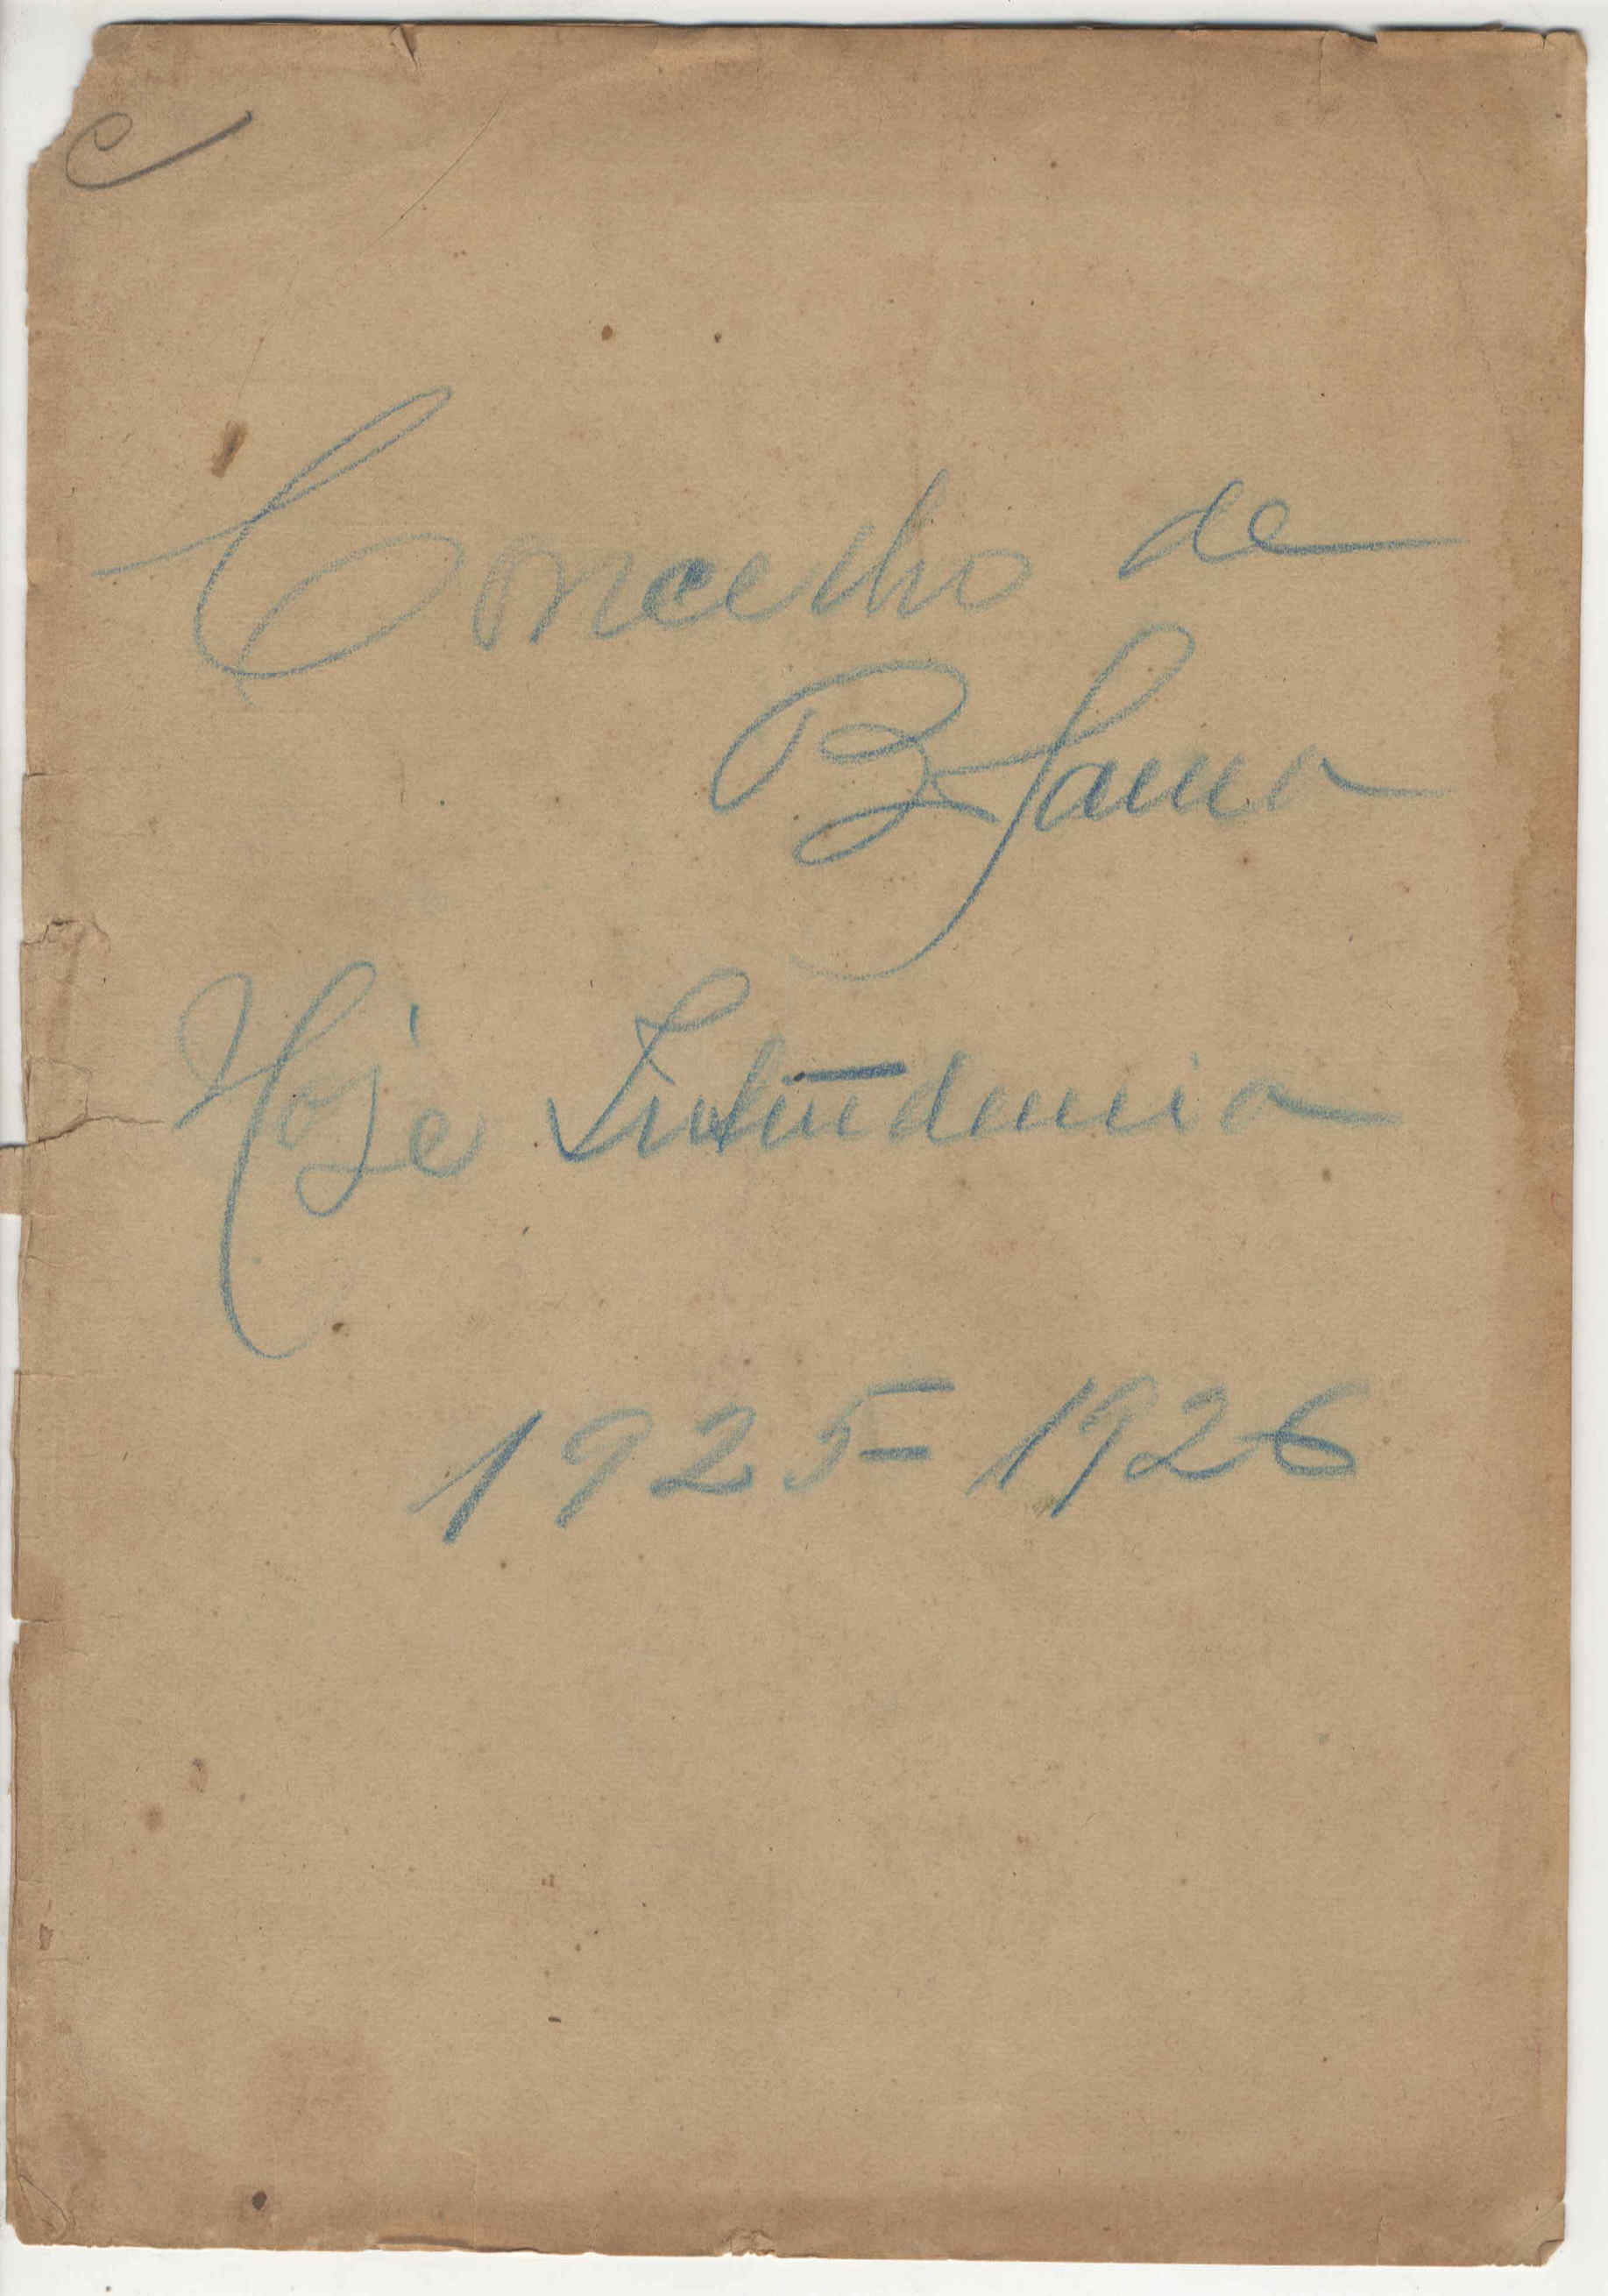 C
Concelho de
Hoje Intendencia
1925-1926